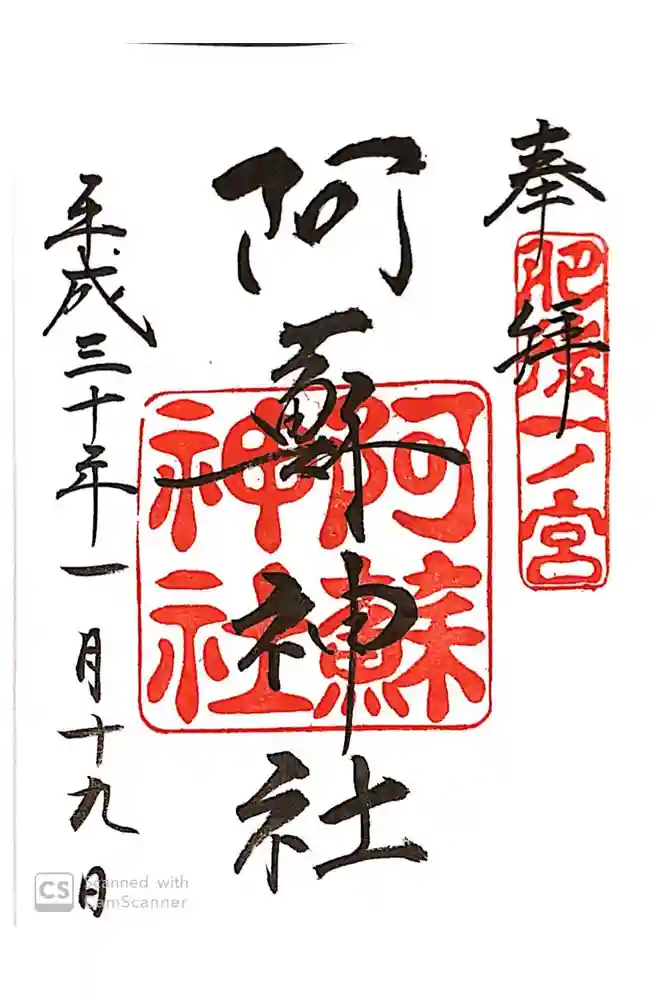 奉拝
肥後一ノ宮
阿蘇神社
阿蘇
神社
平成三十年一月十九日
CS Scanned with
CamScanner